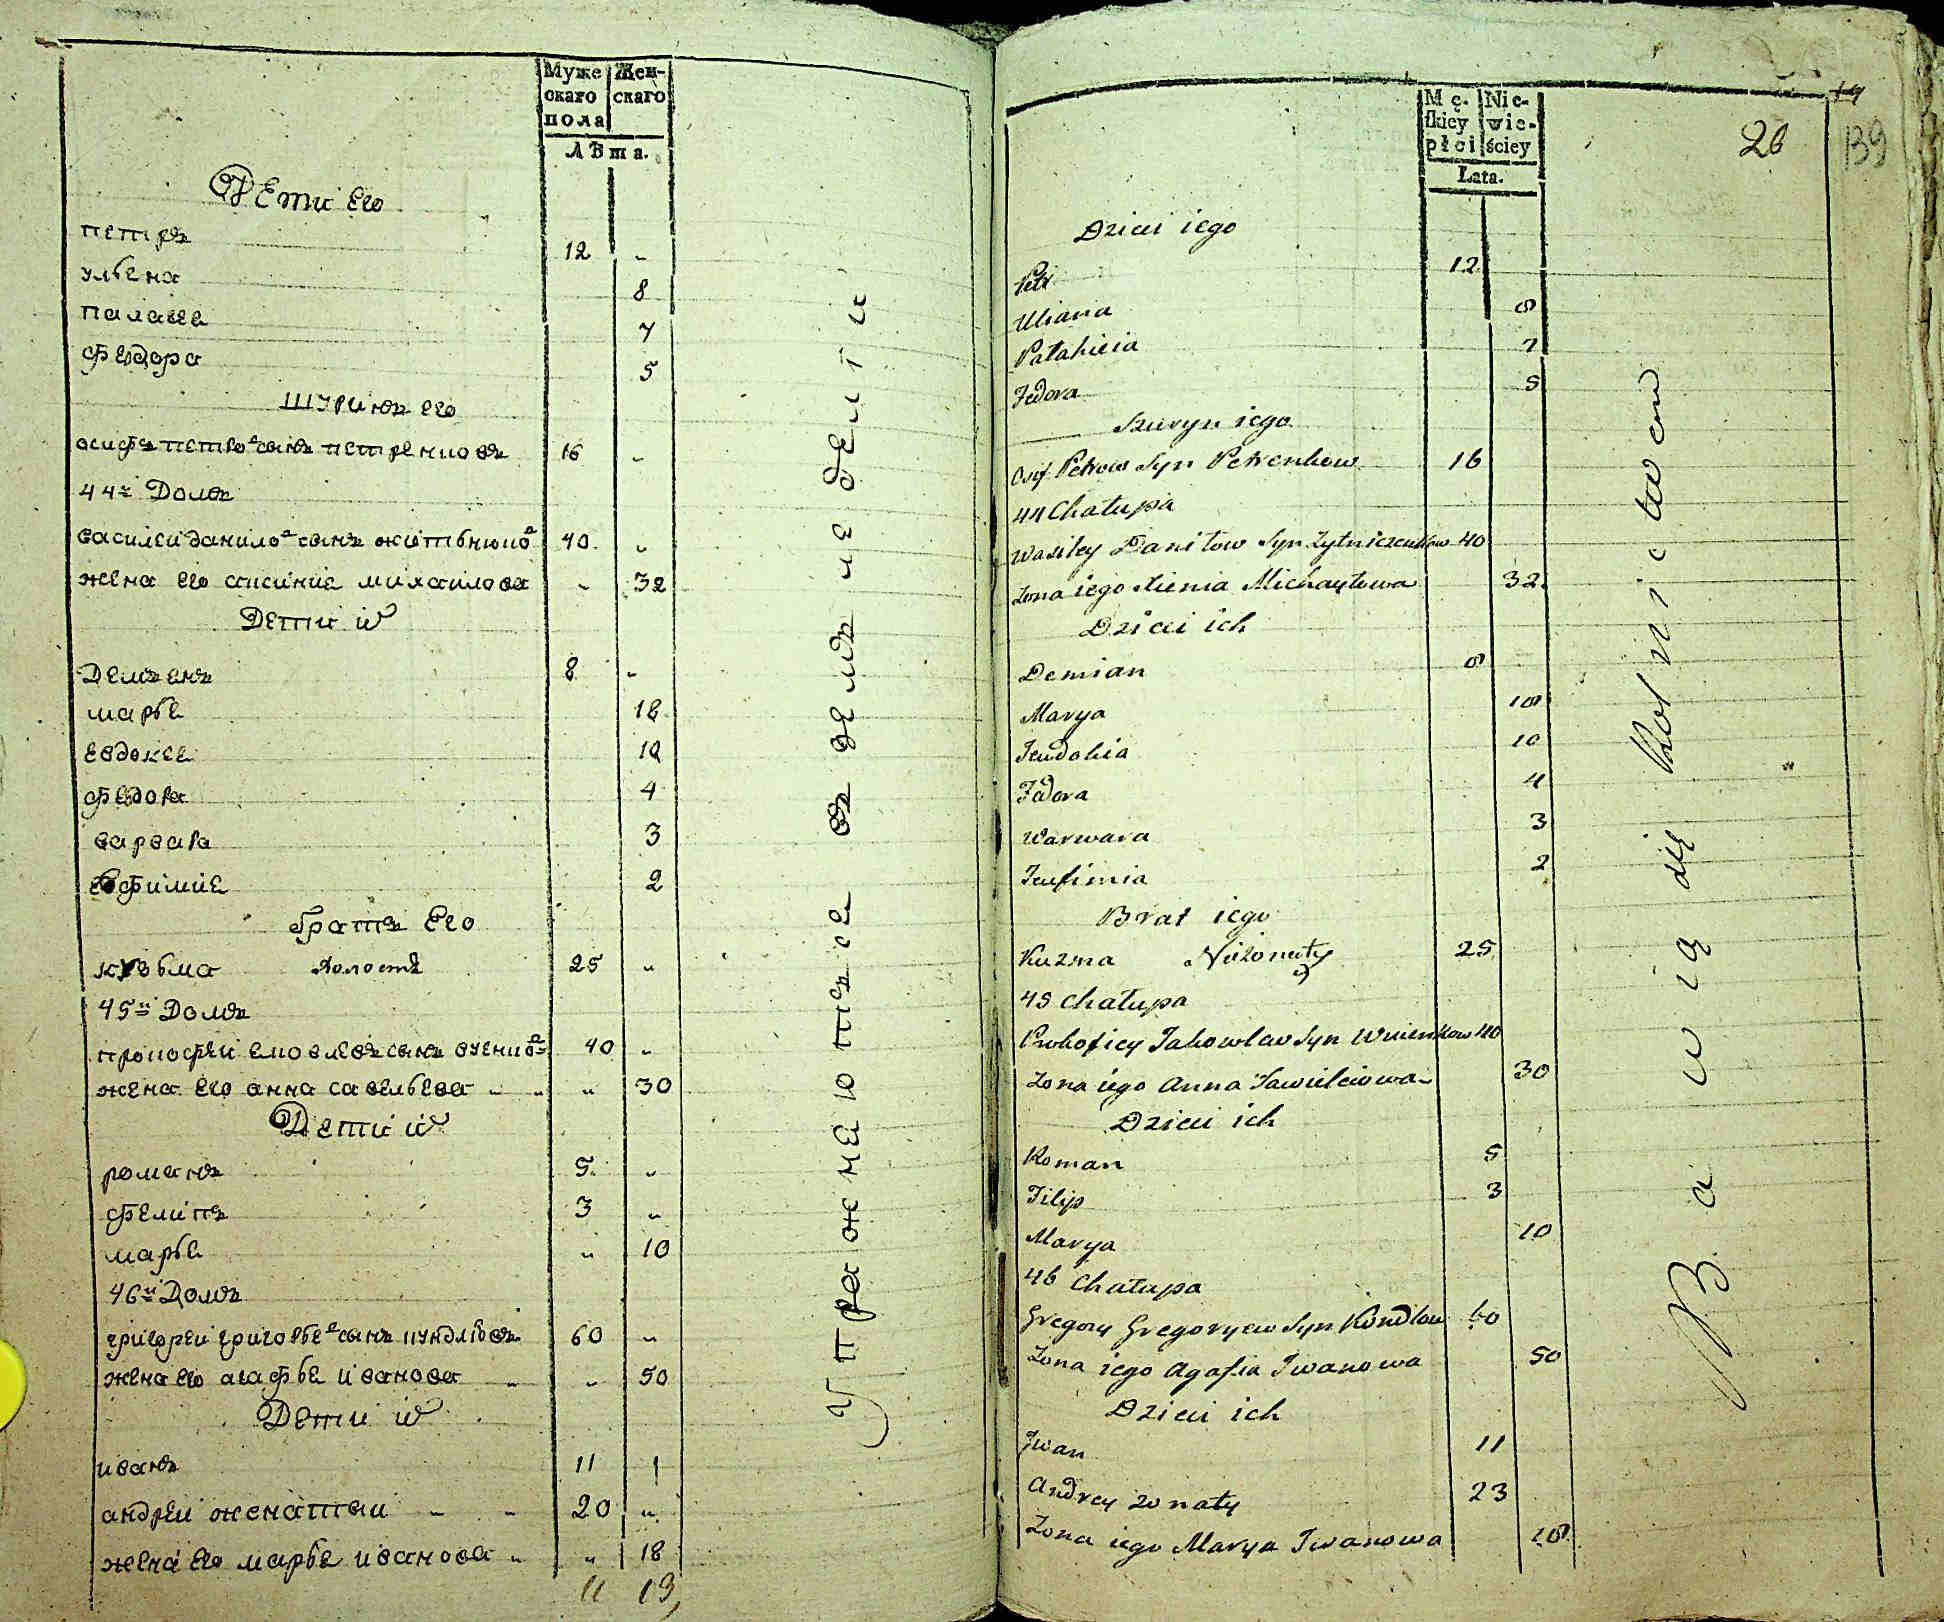 Муже Жен-
скаго скаго
пола
Лѣта.
Дети Его
петръ 12 „
ульена 8
палаге 7
феодора 5
шуринъ его
осифъ петровъ сынъ петренковъ 16 „
44й Домъ
василеи данилов сынъ житьников 40 „
жена его ксиние михаилова „ 32
Дети их
Демъенъ 8 „
марье 18
Евдокее 10
федора 4
варвара 3
Евфимие 2
братъ Его
кузьма холостъ 25 „
45й Домъ
прокофеи емовлевъ сынъ 40 „
жена его анна савельева „ 30
Дети их
романъ 5 „
фелипъ 3 „
марье „ 10
46й Домъ
григореи григорьев сынъ кундловъ 60 „
жена его агафье иванова „ 50
Дети их
иванъ 11
андреи женатыи 20 „
жена его марье иванова „ 18
11 13
Упражнеютце въ земледелiи
Mę- Nie-
ſkiey wie-
płci ściey
Lata.
26
139
Dzieci iego
Petr 12
Uliana 8
Pałahieia 7
Fedora 5
Szuryn iego
Osif Petrow Syn Petrenkow 16
44 Chałupa
Wasiley Daniłow Syn Zytniczenkow 40
Zona iego Xienia Michayłowa 32
Dzieci ich
Demian 8
Marya 18
Jewdokia 10
Fedora 4
Warwara 3
Jeufimia 2
Brat iego
Kuzma Nieżonaty 25
45 Chałupa
Prokofiey Jakowlew Syn 40
Zona iego Anna Sawielciowa 30
Dzieci ich
Roman 5
Filip 3
Marya 10
46 Chałupa
Gregory Gregoryew Syn Kundlow 60
Zona iego Agafia Iwanowa 50
Dzieci ich
Iwan 11
Andrey Zonaty 23
Zona iego Marya Iwanowa 18
Bawią się Rolnictwem